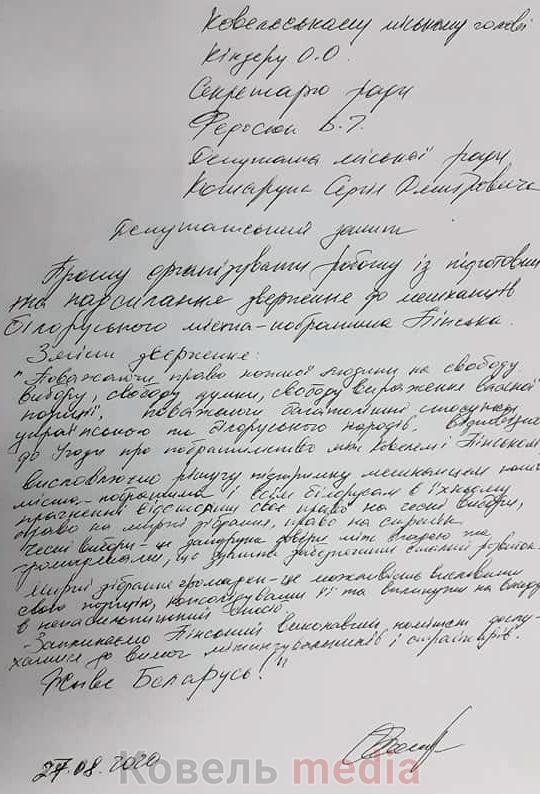 Ковельському міському голові
Кіндеру О.О.
Секретарю ради
Федосюк В.Г.
Депутата міської ради
Кошарука Сергія Дмитровича
Депутатський запит
Прошу організувати роботу із підготовки
та надсилання звернення до мешканців
білоруського міста-побратима Пінська.
Зміст звернення:
"Поважаючи право кожної людини на свободу
вибору, свободу думки, свободу вираження власної
позиції, поважаючи багатолітні стосунки
українського та білоруського народів, відповідно
до Угоди про побратимство між Ковелем і Пінськом
висловлюємо рішучу підтримку мешканцям
міста-побратима і всім білорусам в їхньому
прагненні відстояти своє право на чесні вибори,
право на мирні зібрання, право на страйк.
Чесні вибори - це запорука довіри між владою та
громадянами, що здатна забезпечити сталий розвиток.
Мирні зібрання громадян - це можливість висловити
свою позицію, консолідувати її та вплинути на владу
в ненасильницький спосіб.
- Закликаємо Пінський виконавчий комітет дослу-
хатися до вимог мітингувальників і страйкарів.
Жыве Беларусь!"
27.08.2020
Ковель media